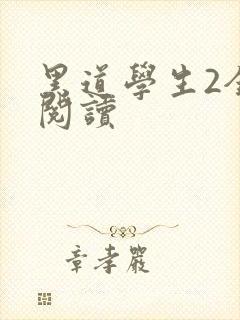 黑道學生2全
閱讀
章孝嚴